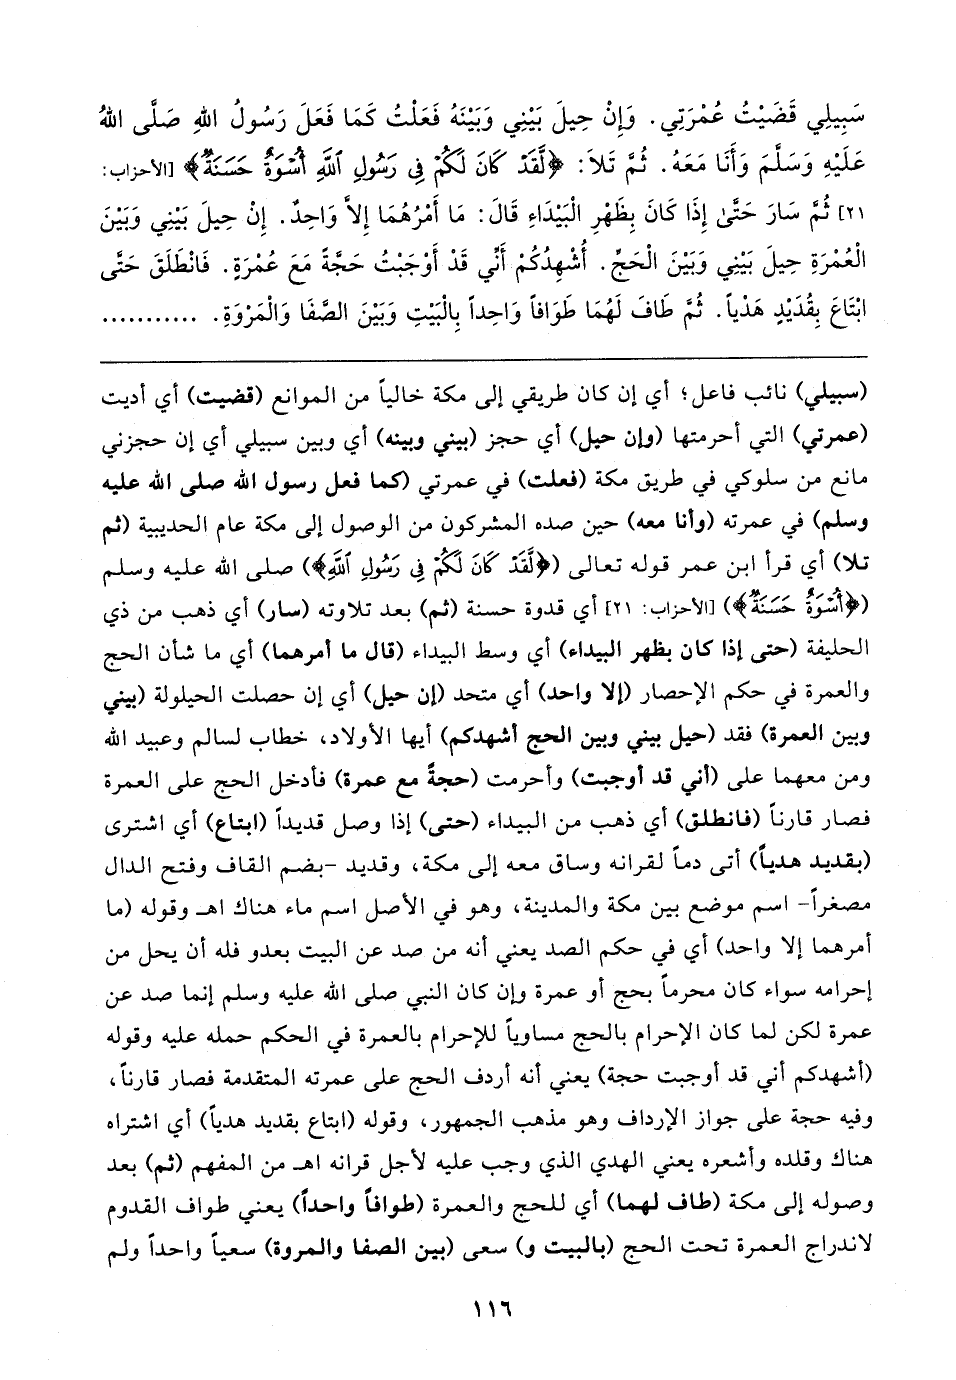 سَبِيلِي قَضَيْتُ عُمْرَتِي. وَإِنْ حِيلَ بَيْنِي وَبَيْنَهُ فَعَلْتُ كَمَا فَعَلَ رَسُولُ اللهِ صَلَّى اللهُ
عَلَيْهِ وَسَلَّمَ وَأَنَا مَعَهُ. ثُمَّ تَلاَ: ﴿لَّقَدْ كَانَ لَكُمْ فِي رَسُولِ ٱللَّهِ أُسْوَةٌ حَسَنَةٌ﴾ [الأحزاب:
٢١] ثُمَّ سَارَ حَتَّىٰ إِذَا كَانَ بِظَهْرِ الْبَيْدَاءِ قَالَ: مَا أَمْرُهُمَا إِلاَّ وَاحِدٌ. إِنْ حِيلَ بَيْنِي وَبَيْنَ
الْعُمْرَةِ حِيلَ بَيْنِي وَبَيْنَ الْحَجِّ. أُشْهِدُكُمْ أَنِّي قَدْ أَوْجَبْتُ حَجَّةً مَعَ عُمْرَةٍ. فَانْطَلَقَ حَتَّى
ابْتَاعَ بِقُدَيْدٍ هَدْياً. ثُمَّ طَافَ لَهُمَا طَوَافاً وَاحِداً بِالْبَيْتِ وَبَيْنَ الصَّفَا وَالْمَرْوَةِ. ...........
(سبيلي) نائب فاعل؛ أي إن كان طريقي إلى مكة خالياً من الموانع (قضيت) أي أديت
(عمرتي) التي أحرمتها (وإن حيل) أي حجز (بيني وبينه) أي وبين سبيلي أي إن حجزني
مانع من سلوكي في طريق مكة (فعلت) في عمرتي (كما فعل رسول الله صلى الله عليه
وسلم) في عمرته (وأنا معه) حين صده المشركون من الوصول إلى مكة عام الحديبية (ثم
تلا) أي قرأ ابن عمر قوله تعالى (﴿لَّقَدْ كَانَ لَكُمْ فِي رَسُولِ ٱللَّهِ﴾) صلى الله عليه وسلم
(﴿أُسْوَةٌ حَسَنَةٌ﴾) [الأحزاب: ٢١] أي قدوة حسنة (ثم) بعد تلاوته (سار) أي ذهب من ذي
الحليفة (حتى إذا كان بظهر البيداء) أي وسط البيداء (قال ما أمرهما) أي ما شأن الحج
والعمرة في حكم الإحصار (إلا واحد) أي متحد (إن حيل) أي إن حصلت الحيلولة (بيني
وبين العمرة) فقد (حيل بيني وبين الحج أشهدكم) أيها الأولاد، خطاب لسالم وعبيد الله
ومن معهما على (أني قد أوجبت) وأحرمت (حجةً مع عمرة) فأدخل الحج على العمرة
فصار قارناً (فانطلق) أي ذهب من البيداء (حتى) إذا وصل قديداً (ابتاع) أي اشترى
(بقديد هدياً) أتى دماً لقرانه وساق معه إلى مكة، وقديد -بضم القاف وفتح الدال
مصغراً- اسم موضع بين مكة والمدينة، وهو في الأصل اسم ماء هناك اهـ وقوله (ما
أمرهما إلا واحد) أي في حكم الصد يعني أنه من صد عن البيت بعدو فله أن يحل من
إحرامه سواء كان محرماً بحج أو عمرة وإن كان النبي صلى الله عليه وسلم إنما صد عن
عمرة لكن لما كان الإحرام بالحج مساوياً للإحرام بالعمرة في الحكم حمله عليه وقوله
(أشهدكم أني قد أوجبت حجة) يعني أنه أردف الحج على عمرته المتقدمة فصار قارناً،
وفيه حجة على جواز الإرداف وهو مذهب الجمهور، وقوله (ابتاع بقديد هدياً) أي اشتراه
هناك وقلده وأشعره يعني الهدي الذي وجب عليه لأجل قرانه اهـ من المفهم (ثم) بعد
وصوله إلى مكة (طاف لهما) أي للحج والعمرة (طوافاً واحداً) يعني طواف القدوم
لاندراج العمرة تحت الحج (بالبيت و) سعى (بين الصفا والمروة) سعياً واحداً ولم
١١٦